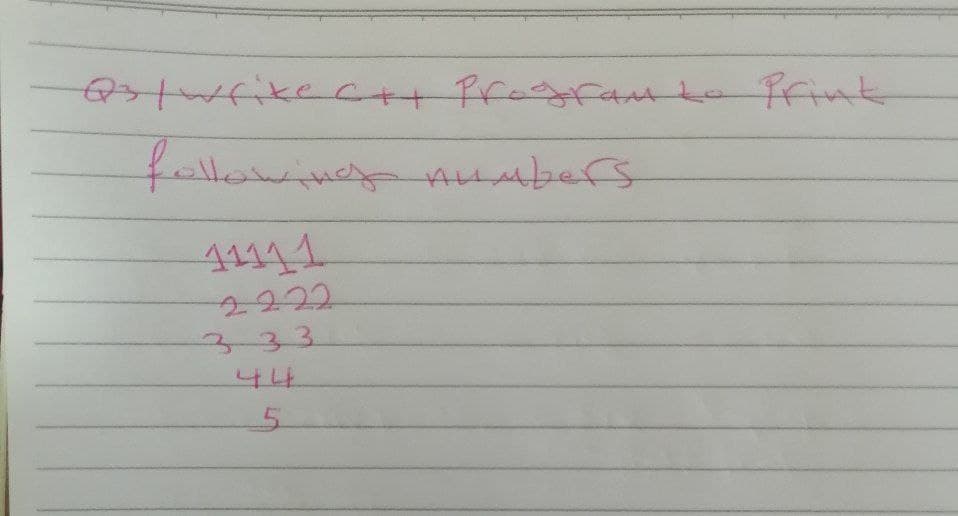 Q3/write C++ Program to Print
following numbers
11111
2222
3 33
44
5